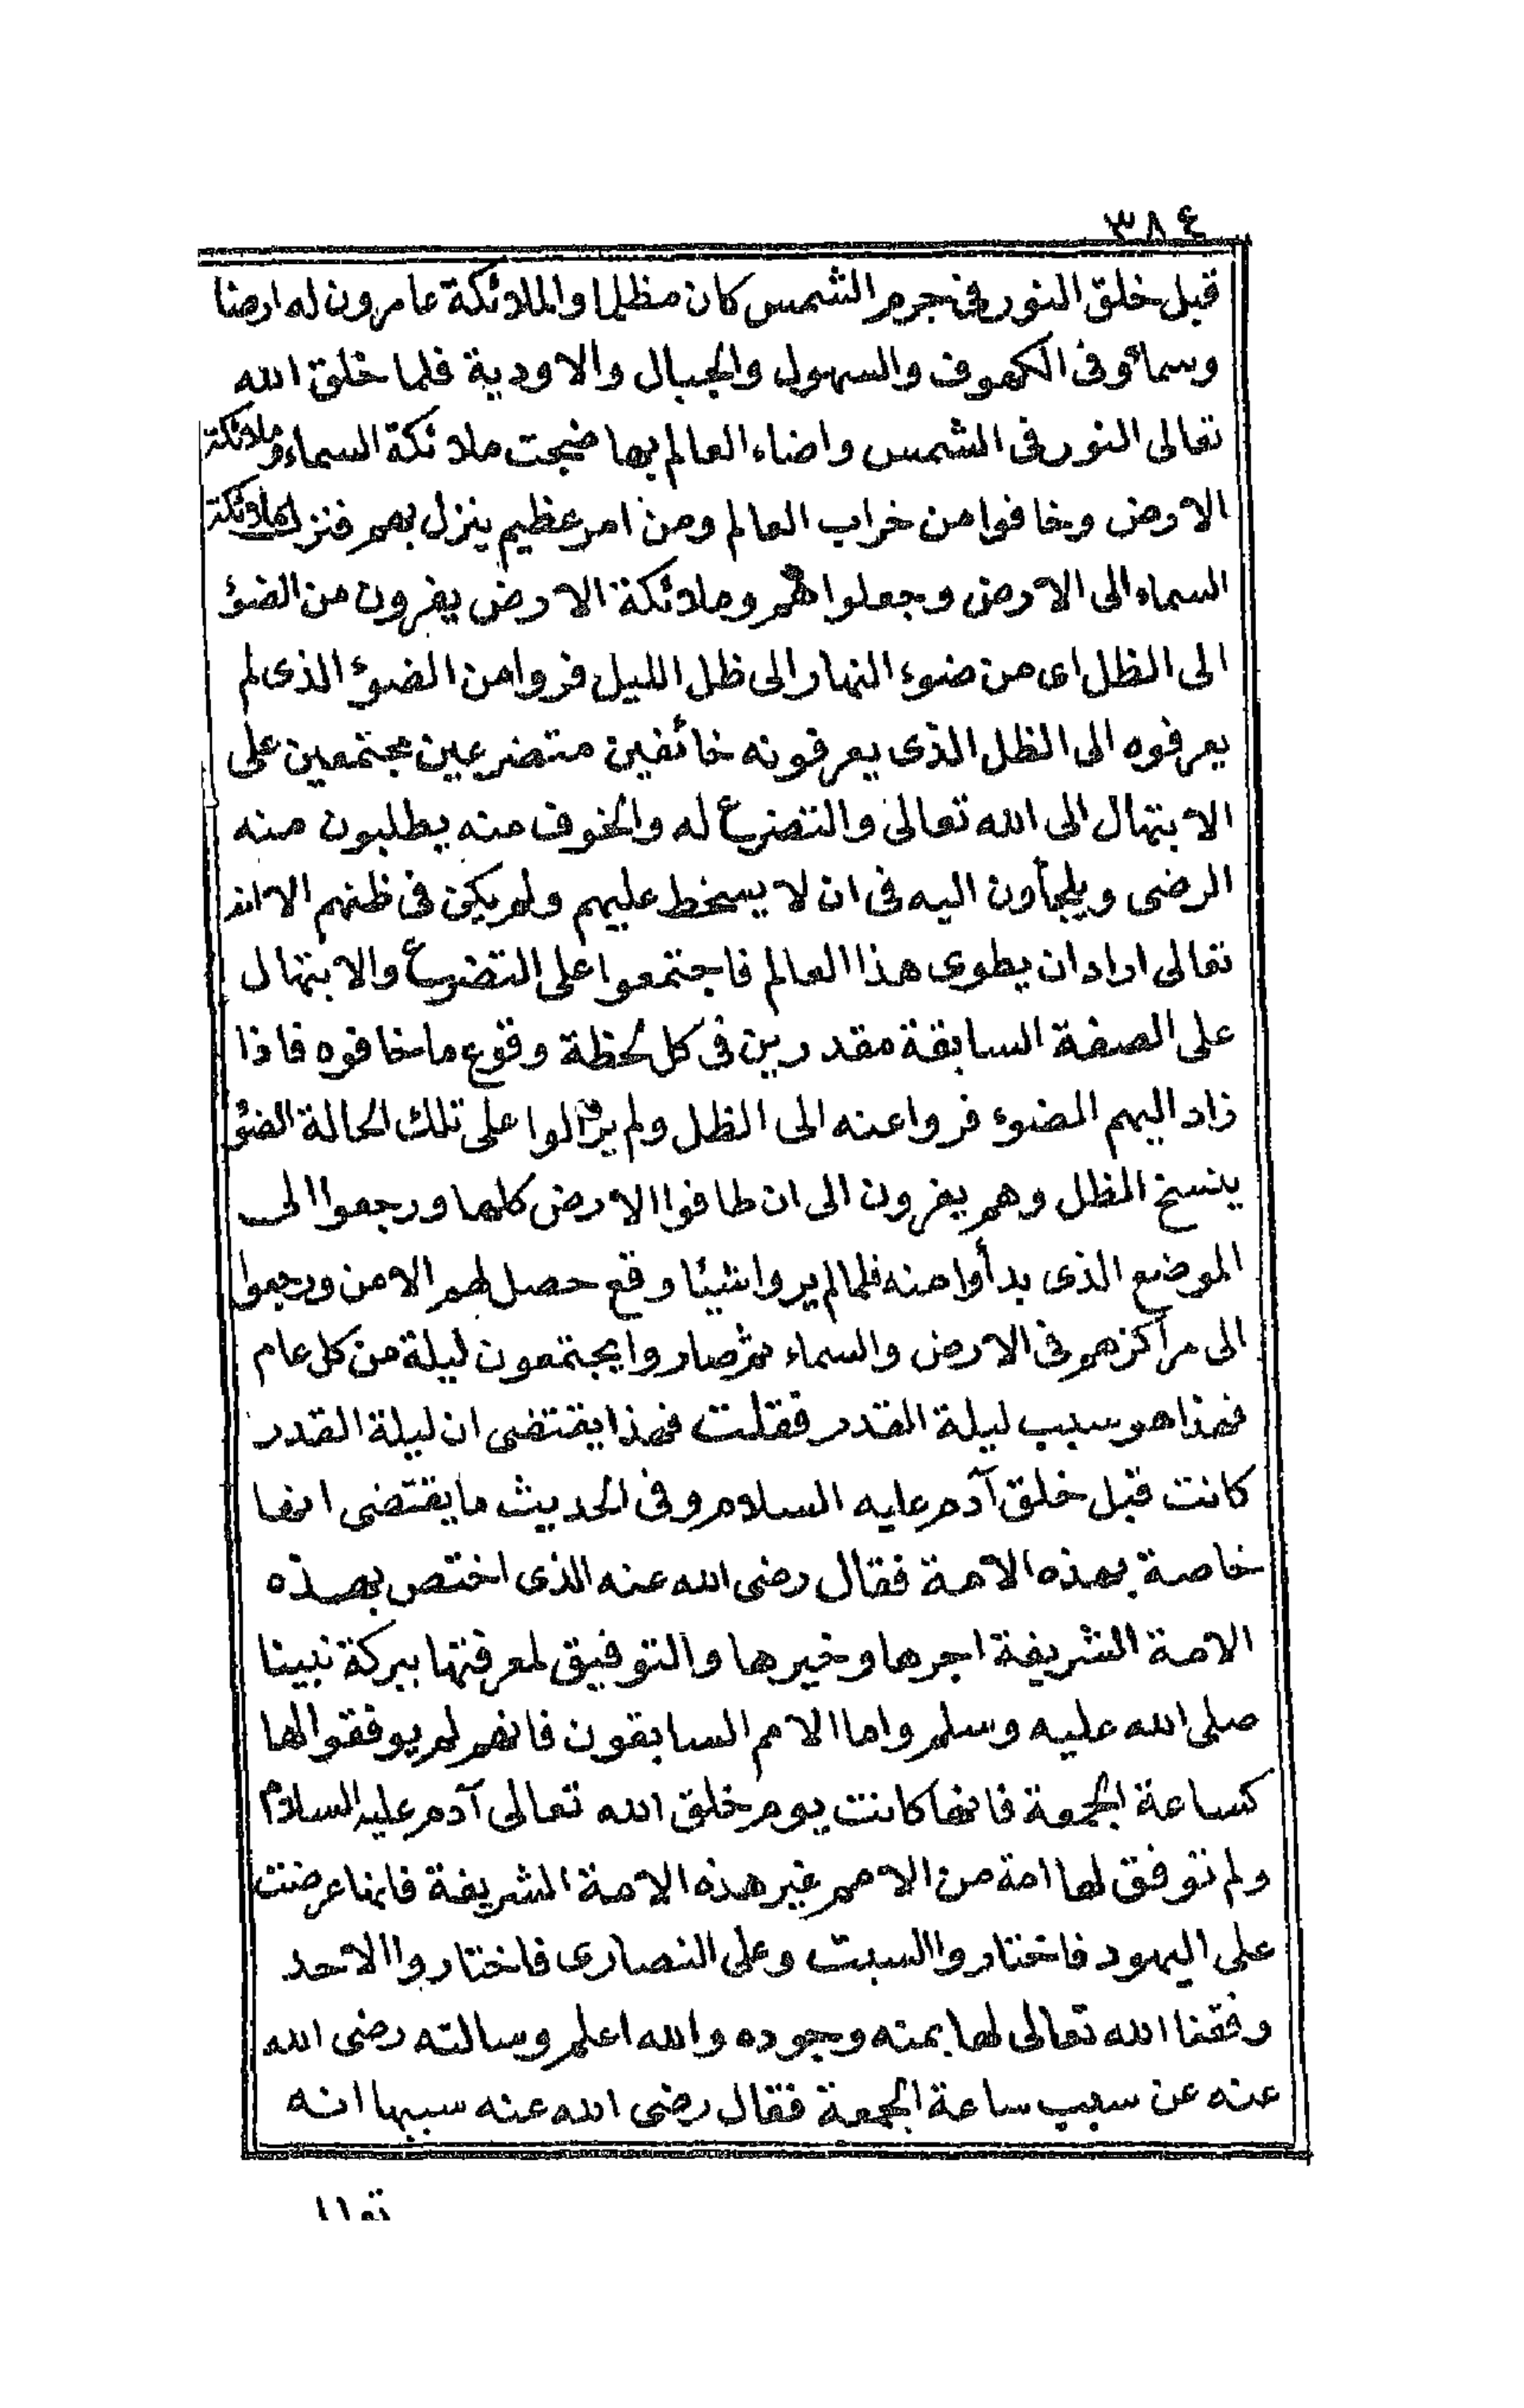 ٣٨٤
قبل خلق النور فى جرم الشمس كان مظلما والملائكة عامرون له ارضا
وسماءً وفى الكهوف والسهول والجبال والاودية فلما خلق الله
تعالى النور فى الشمس واضاء العالم بها ضجت ملائكة السماء وملائكة
الارض وخافوا من خراب العالم ومن امر عظيم ينزل بهم فنزل ملائكة
السماء الى الارض وجعلوا هم وملائكة الارض يفرون من الضوء
الى الظل اى من ضوء النهار الى ظل الليل فروا من الضوء الذى لم
يعرفوه الى الظل الذى يعرفونه خائفين متضرعين مجتمعين على
الابتهال الى الله تعالى والتضرع له والخوف منه يطلبون منه
الرضى ويلجأون اليه فى ان لا يسخط عليهم ولم يكن فى ظنهم الا انه
تعالى اراد ان يطوى هذا العالم فاجتمعوا على التضرع والابتهال
على الصفة السابقة مقدرين فى كل لحظة وقوع ما خافوه فاذا
زاد اليهم الضوء فروا عنه الى الظل ولم يزالوا على تلك الحالة الضوء
ينسخ الظل وهم يفرون الى ان طافوا الارض كلها ورجعوا الى
الموضع الذى بدأوا منه فلما لم يروا شيئا وقع حصل لهم الامن ورجعوا
الى مراكزهم فى الارض والسماء ثم صاروا يجتمعون ليلة من كل عام
فهذا هو سبب ليلة القدر فقلت فهذا يقتضى ان ليلة القدر
كانت قبل خلق آدم عليه السلام وفى الحديث ما يقتضى انها
خاصة بهذه الامة فقال رضى الله عنه الذى اختص بهذه
الامة الشريفة اجرها وخيرها والتوفيق لمعرفتها ببركة نبينا
صلى الله عليه وسلم واما الامم السابقون فانهم لم يوفقوا لها
كساعة الجمعة فانها كانت يوم خلق الله تعالى آدم عليه السلام
ولم توفق لها امة من الامم غير هذه الامة الشريفة فانها عرضت
على اليهود فاختاروا السبت وعلى النصارى فاختاروا الاحد
وفقنا الله تعالى لها بمنه وجوده والله اعلم وسالته رضى الله
عنه عن سبب ساعة الجمعة فقال رضى الله عنه سببها انه